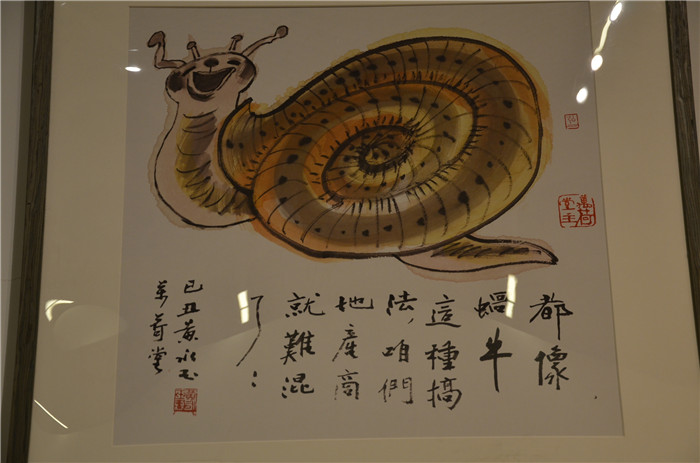 都像
蝸牛
這種搞
法，咱們
地產商
就難混
了：
己丑黃永玉
萬荷堂
萬荷堂主